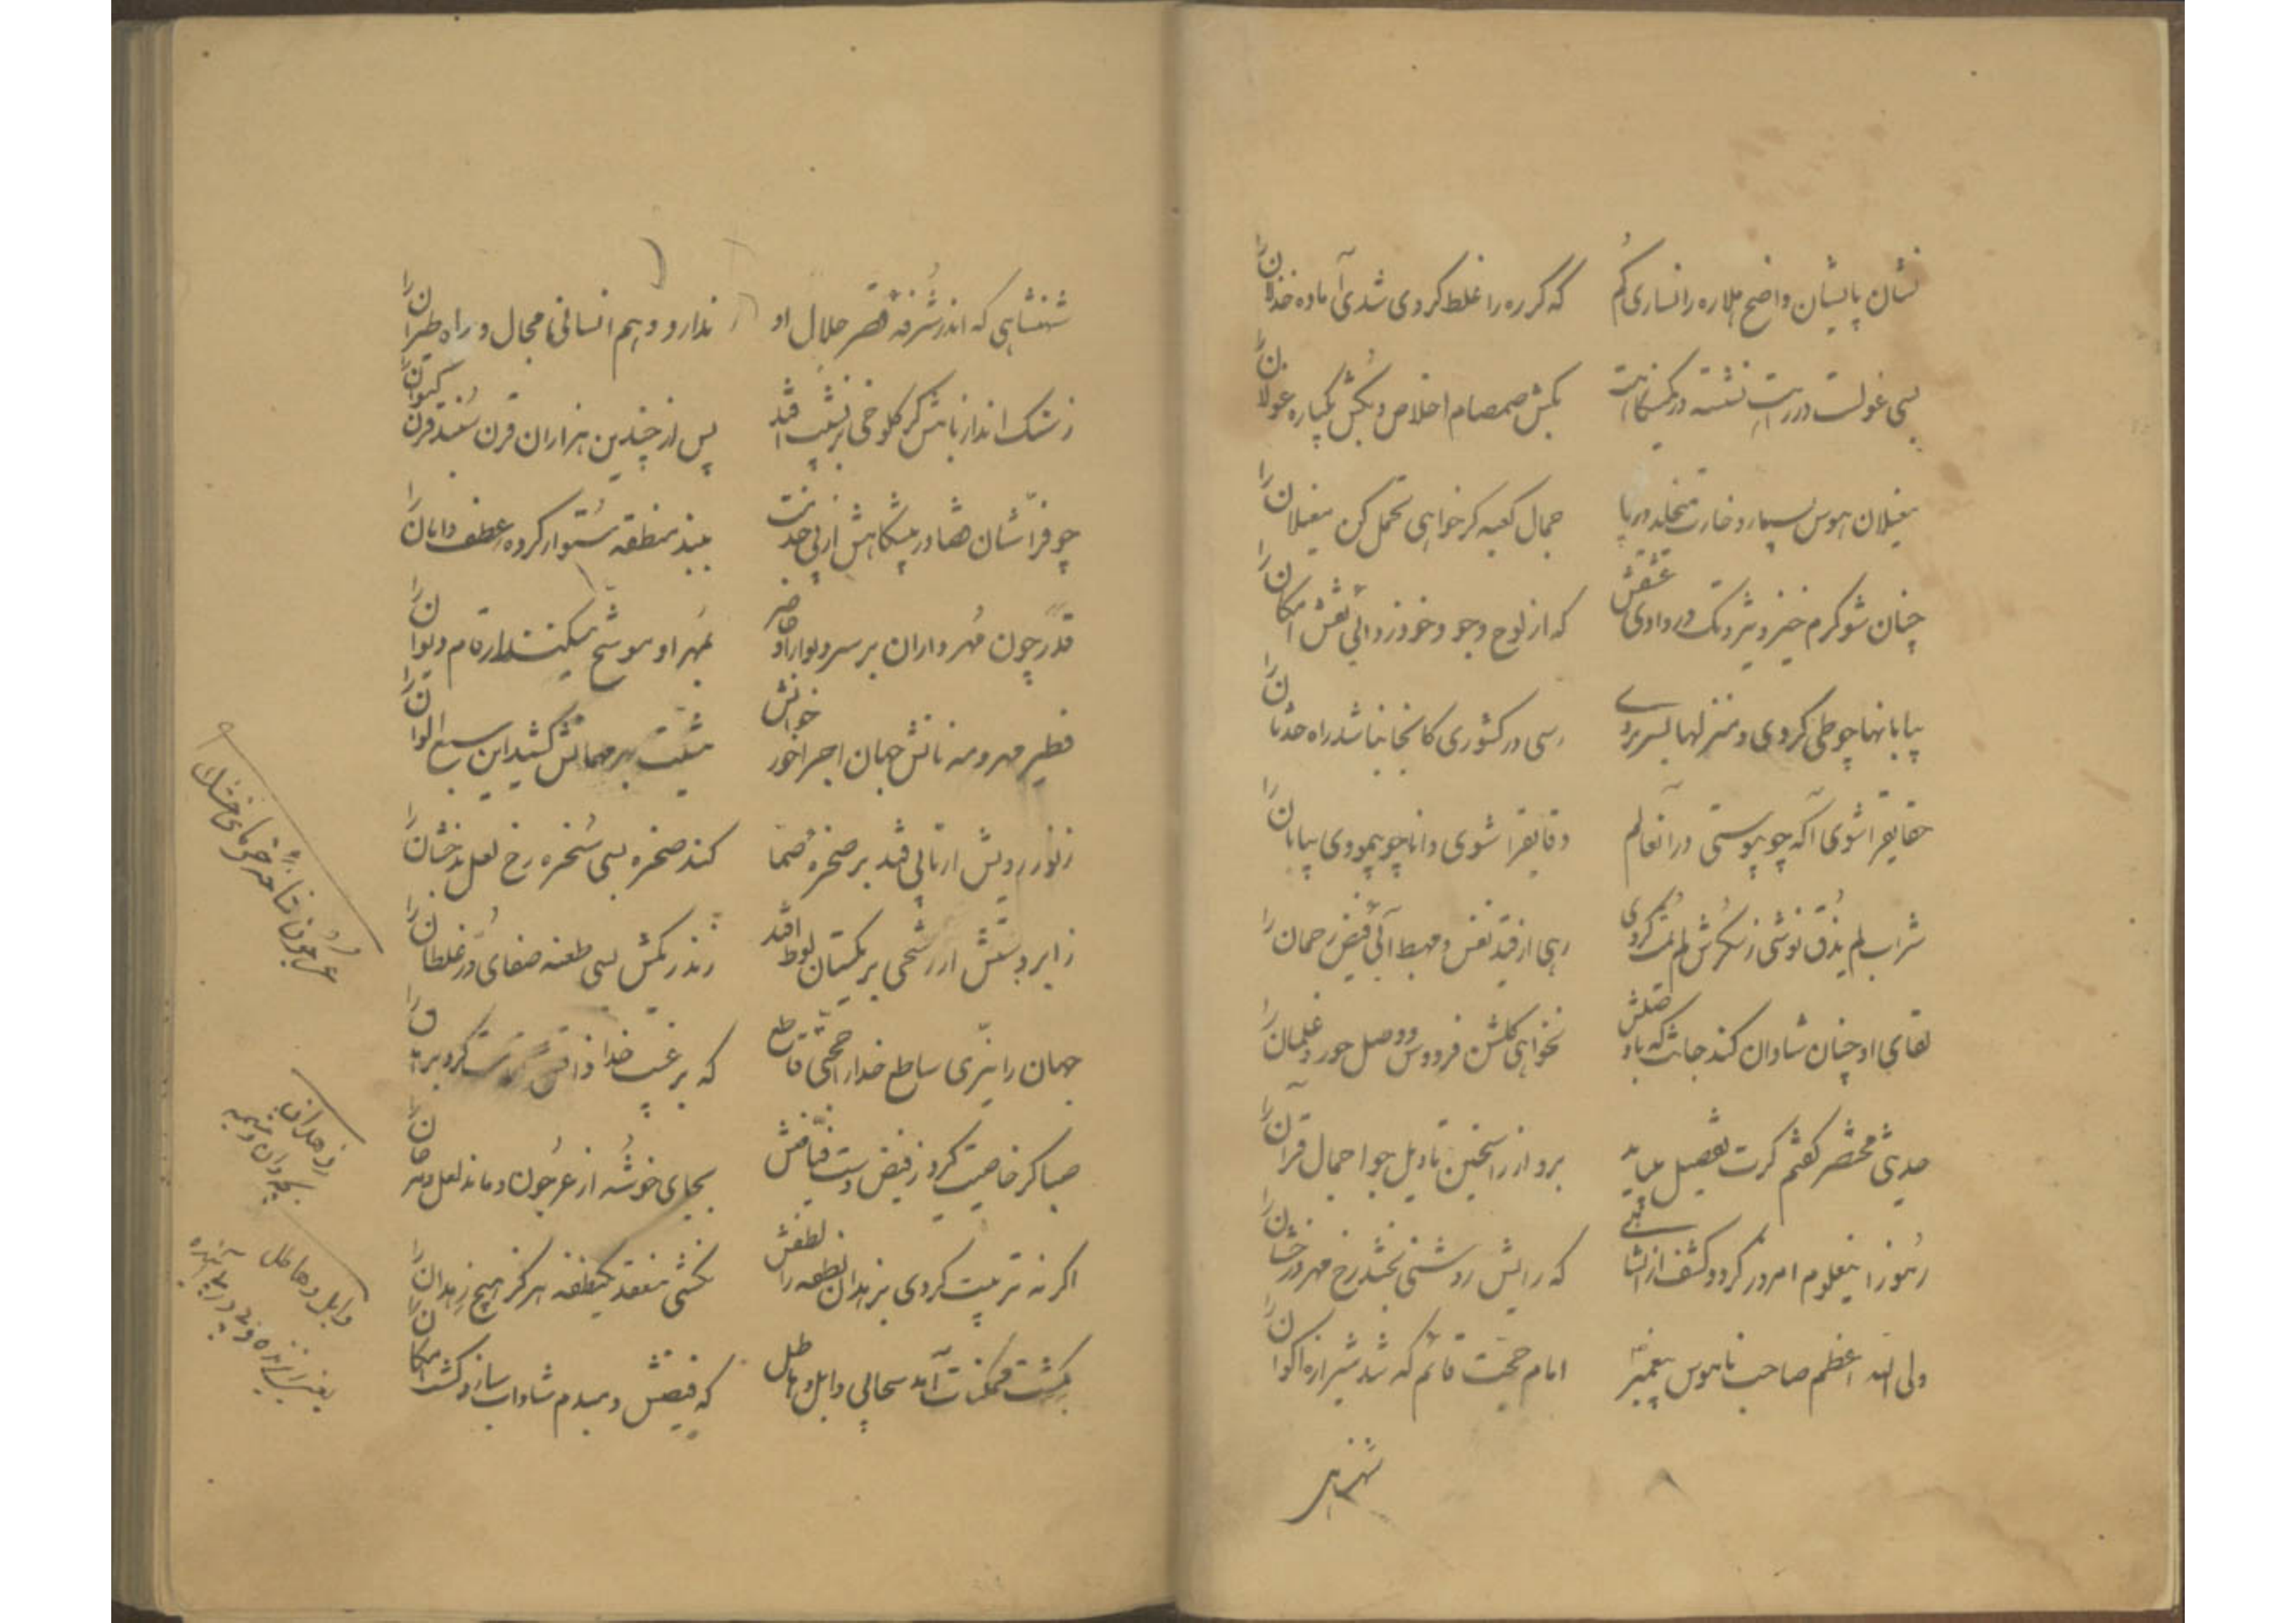 نشان پایشان واضح هلا ره را نساری گم
که گر ره را غلط کردی شدی آماده خذلان را
بسی غولست در راهت نشسته در کمینگاهت
بکش صمصام اخلاص و بکش یکباره غولان را
مغیلان هوس بسیار و خارت میخلد در پا
جمال کعبه گر خواهی تحمل کن مغیلان را
چنان شو گرم خیز و تیز رو تک در وادی عشقش
که از لوح وجود خود زدائی نقش امکان را
بیابانها چو طی کردی و منزلها بسر بردی
رسی در کشوری کانجا نباشد راه حدثان را
حقایق را شوی آگه چو پیوستی در آنعالم
دقایق را شوی دانا چو پیمودی بیابان را
شراب لم یذق نوشی ز سکرش لم کردی
رهی از قید نفس و مهبط آئی فیض رحمان را
لقای او چنان شادان کند جانت که با وصلش
نخواهی گلشن فردوس و وصل حور و غلمان را
حدیثی مختصر گفتم گرت تفصیل میباید
برو از راسخین تاویل جو اجمال قرآن را
رموز اینعلوم امروز گردد کشف از
که رایش روشنی بخشد رخ مهر درخشان را
ولی الله اعظم صاحب ناموس پیغمبر
امام حجت قائم که شد شیرازه اکوان را
شهنشاهی
شهنشاهی که اندر شرفه قصر جلال او
ندارد وهم انسانی مجال و راه طیران را
ز سنگ انداز بامش گر کلوخی بر نشیب افتد
پس از چندین هزاران قرن کیوان را
چو فراشان قضا در پیشگاهش از پی خدمت
ببند منطقه ستوار کرده عطف دامان را
قدر چون مهرداران بر سر دیوار او حاضر
بمهر او موشح میکند ارقام دیوان را
فطیر مهر و مه نانش جهان اجرا خور خوانش
مشیت بهر مهمانش کشید این سبع الوان را
ز نور رویش ار تابی فتد بر صخره صما
کند صخره بسی سخره رخ لعل بدخشان را
ز ابر دستش ار رشحی بریگستان لوط افتد
زند ریگش بسی طعنه صفای در غلطان را
جهان را نیری ساطع خدا را حجتی قاطع
که بر غیب خدا ذاتش کرد برهان را
صبا گر خاصیت گیرد ز فیض دست فیاضش
بجای خوشه از عرجون دماند لعل و مرجان را
اگر نه تربیت کردی بزهدان نطفه را لطفش
نگشتی منعقد یکنطفه هرگز هیچ زهدان را
بکشت ممکنات آمد سحابی وابل و هاطل
که فیضش دمبدم شاداب سازد کشت امکان را
عرجون خرمای خشک
زهدان
بچه‌دان
وابل و هاطل